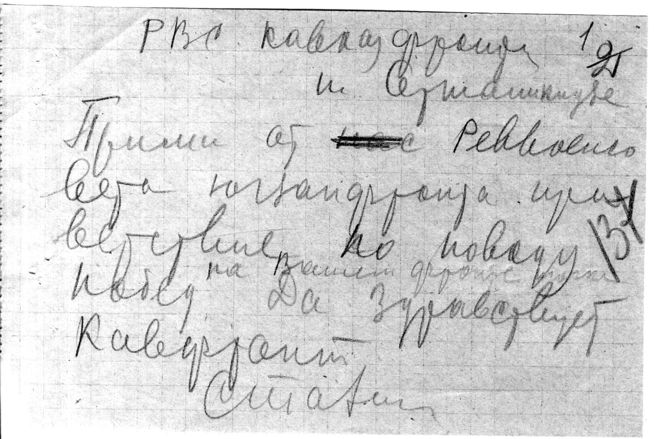 РВС Кавказфронта
т. Серго Орджоникидзе
Прими от нас Реввоенсо
вета югзапфронта при
ветствие по поводу
побед на Вашем фронте
Да здравствует
Кавфронт
Сталин